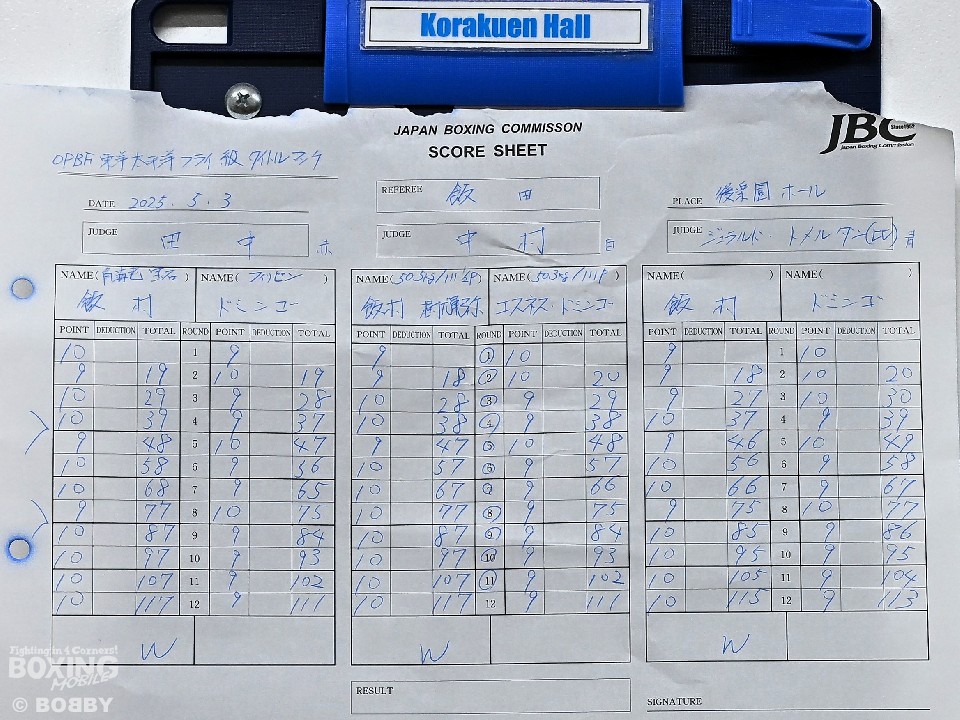 Korakuen Hall
JAPAN BOXING COMMISSON
SCORE SHEET
JBC
Japan Boxing Commission
OPBF 東洋太平洋フライ級タイトルマッチ
DATE 2025. 5. 3
REFEREE 飯田
PLACE 後楽園ホール
JUDGE 田中 赤
JUDGE 中村 白
JUDGE ジェラルド・トメルダン(比) 青
NAME( ) NAME(フィリピン) NAME( ) NAME( ) NAME( ) NAME( )
飯村 ドミンゴ 飯村 エスネス・ドミンゴ 飯村 ドミンゴ
POINT DEDUCTION TOTAL ROUND POINT DEDUCTION TOTAL POINT DEDUCTION TOTAL ROUND POINT DEDUCTION TOTAL POINT DEDUCTION TOTAL ROUND POINT DEDUCTION TOTAL
10 1 9 9 1 10 9 1 10
9 19 2 10 19 9 18 2 10 20 9 18 2 10 20
10 29 3 9 28 10 28 3 9 29 9 27 3 10 30
10 39 4 9 37 10 38 4 9 38 10 37 4 9 39
9 48 5 10 47 9 47 5 10 48 9 46 5 10 49
10 58 6 9 56 10 57 6 9 57 10 56 6 9 58
10 68 7 9 65 10 67 7 9 66 10 66 7 9 67
9 77 8 10 75 10 77 8 9 75 9 75 8 10 77
10 87 9 9 84 10 87 9 9 84 10 85 9 9 86
10 97 10 9 93 10 97 10 9 93 10 95 10 9 95
10 107 11 9 102 10 107 11 9 102 10 105 11 9 104
10 117 12 9 111 10 117 12 9 111 10 115 12 9 113
W W W
RESULT
SIGNATURE
Fighting in 4 Corners!
BOXING
MOBILE
© BOBBY